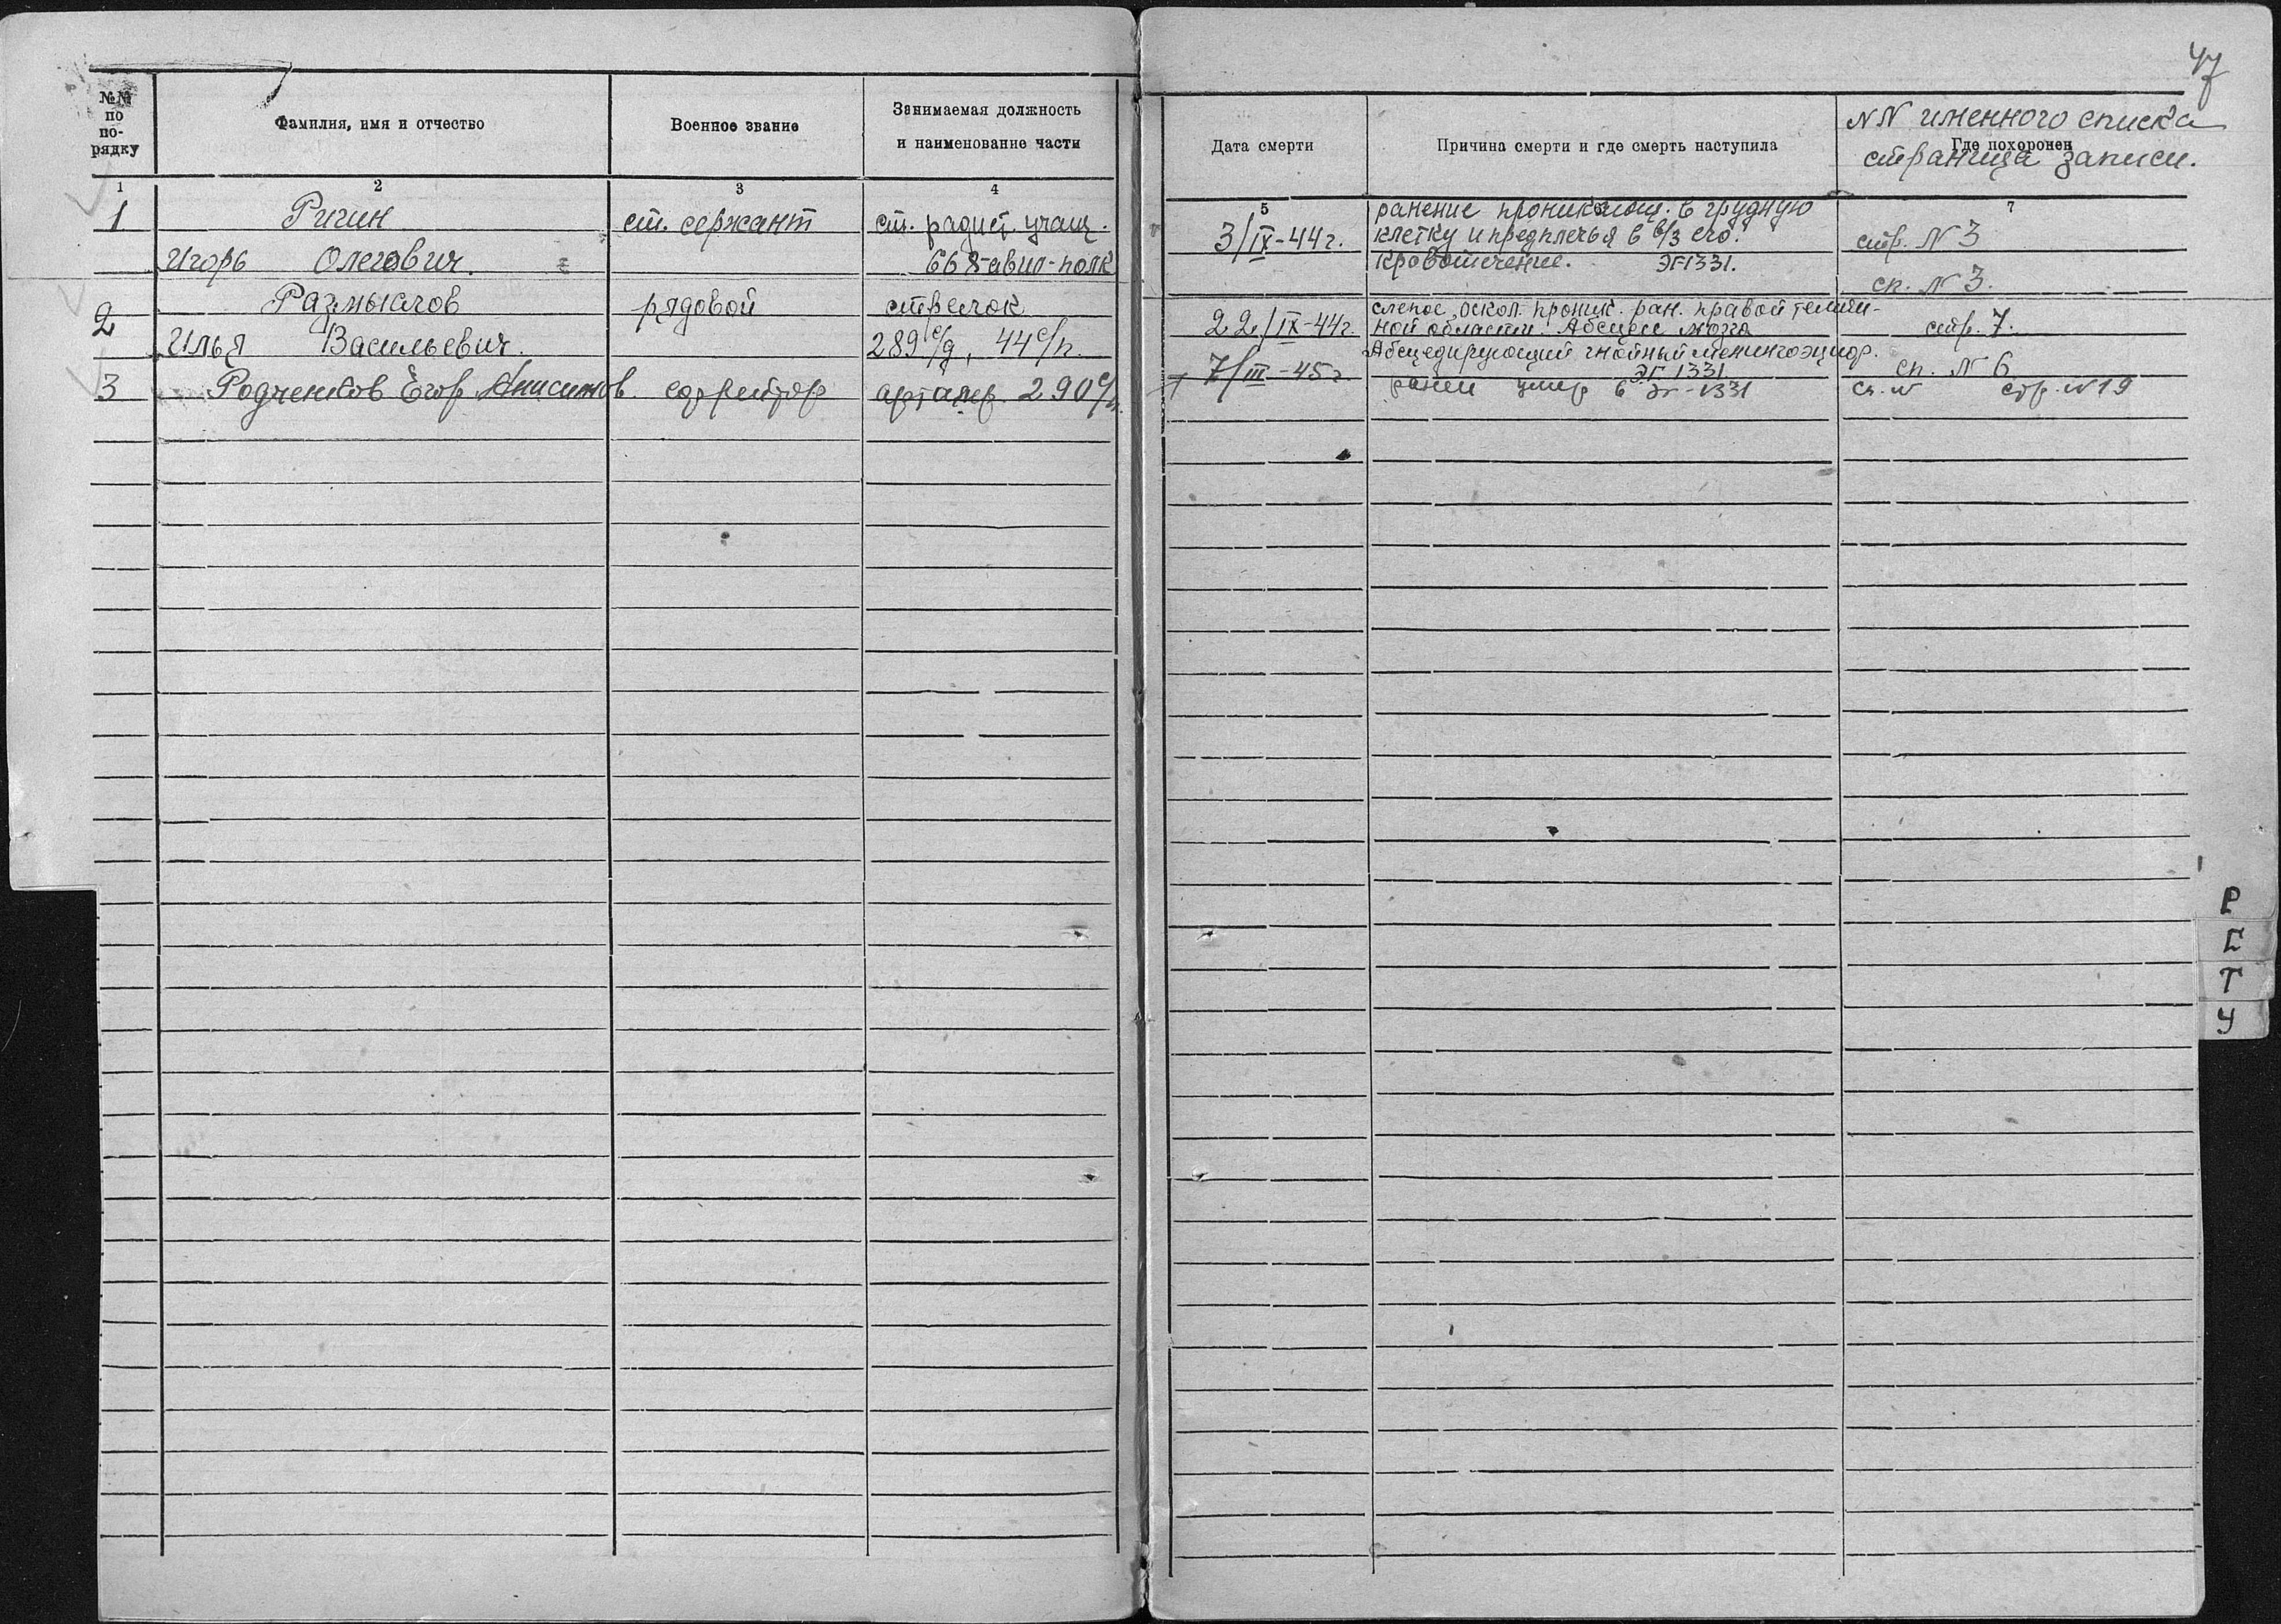 47
№№ по по- рядку
Фамилия, имя и отчество
Военное звание
Занимаемая должность и наименование части
Дата смерти
Причина смерти и где смерть наступила
Где похоронен
NN именного списка
страница записи.
1 2 3 4 5 7
1 Ригин ст. сержант ст. радист
Игорь Олегович. авиа-полк
3/IX-44г.
ранение проникающ. в грудную
клетку и предплечья в в/3
кровотечение. ЭГ1331.
стр. N 3
сп. N 3.
2 рядовой стрелок
Илья Васильевич. 289 с/д, 44 с/п.
22/IX-44г.
слепое оскол. проник. ран. правой темен-
ной области. Абсцесс мозга
Абсцедирующий гнойный
ЭГ 1331
стр. 7.
сп. N 6
3 Родченков Егор Анисимов. ефрейтор 290 с/п.
7/III-45г.
ранен умер в ЭГ-1331
стр. N 19
Р
С
Т
У